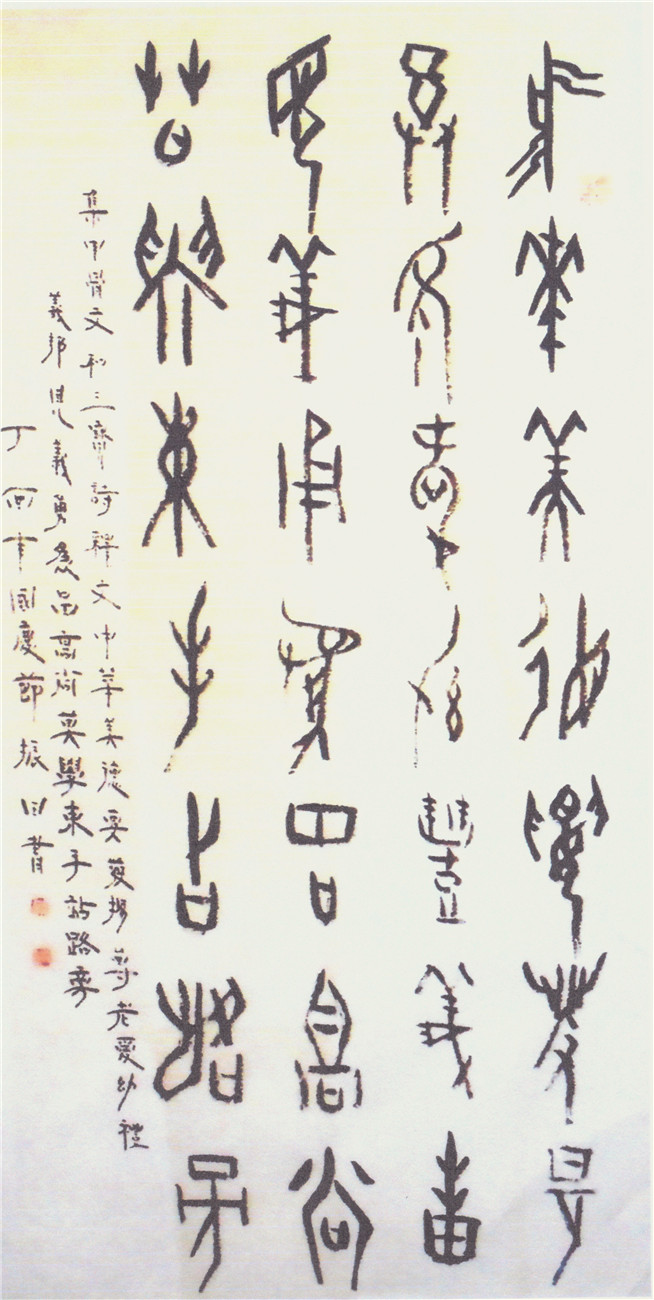 中華美德要發揚
尊老愛幼禮義邦
見義勇為品高尚
莫學束手站路旁
集甲骨文和三齋詩釋文中華美德要發揚尊老愛幼禮
義邦見義勇為品高尚莫學束手站路旁
丁酉年國慶節振田書